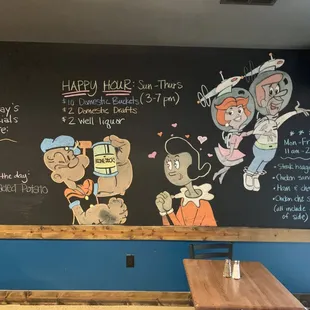 ay's
ials
re:
the day:
Potato
HAPPY HOUR: Sun-Thurs
$10 Domestic Buckets (3-7pm)
$2 Domestic Drafts
$2 Well liquor
Mon-Fri
11am-2
• Steak hoag
• Chicken san
• Ham & che
• Chicken che
(all include
of side)